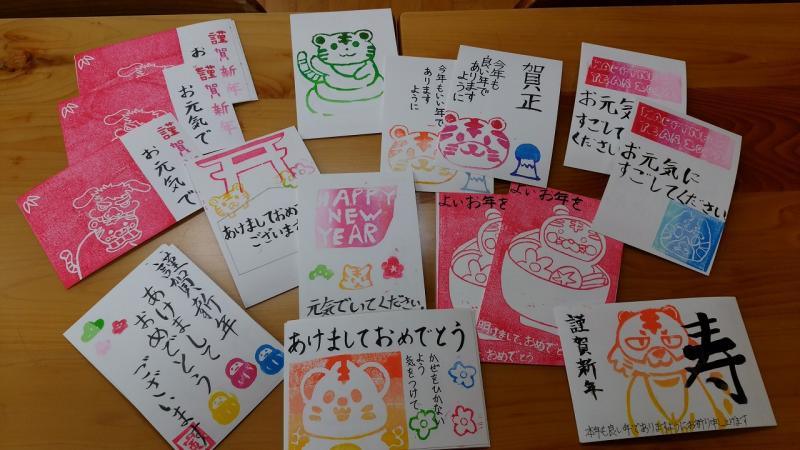 謹賀新年
お
謹賀新年
お元気で
謹賀新年
お元気で
今年もいい年で
あります
ように
今年も
良い年で
あります
ように
賀正
お元気
すごして
ください
お元気に
すごしてください
あけましておめで
ございます
HAPPY
NEW
YEAR
元気でいてください。
よいお年を
よいお年を
明けまして、おめで
おめでとう
謹賀新年
あけまして
おめでとう
ございます
あけましておめでとう
かぜをひかない
よう
気をつけて
謹賀新年
寿
本年も良い年でありますようにお祈り申し上げます